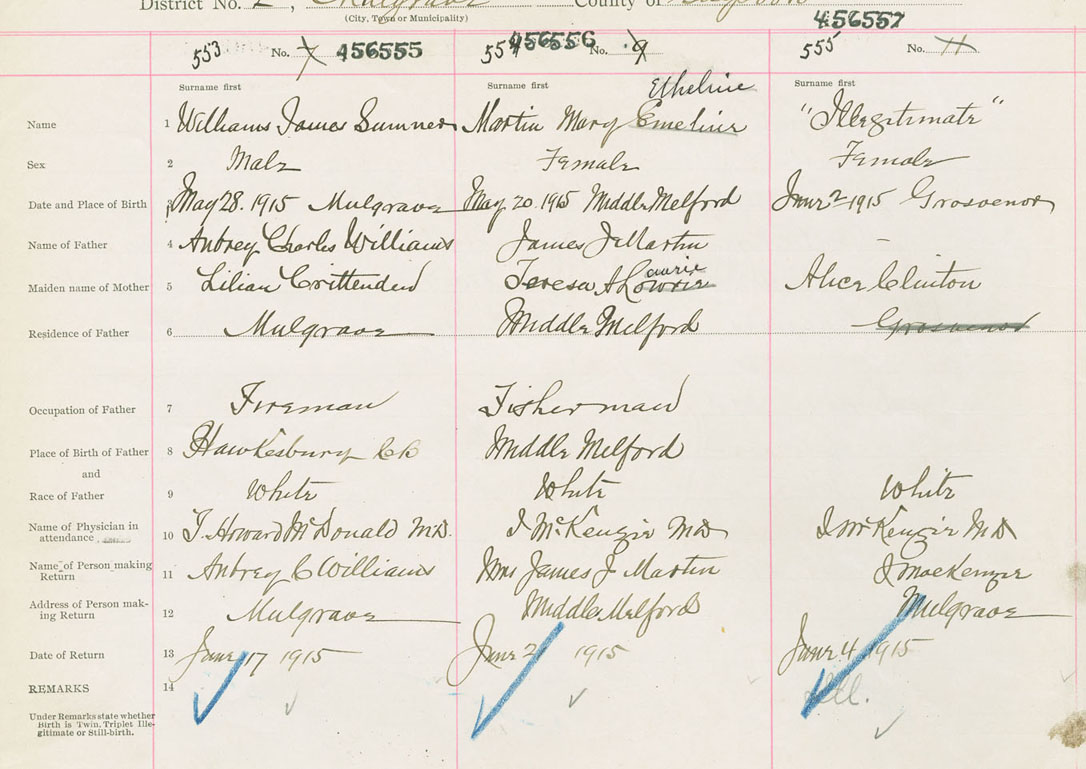 District No. 2, Mulgrave County of
(City, Town or Municipality)
553 No. 7 456555 554 456556 No. 9 555 No. 11 456557
Surname first Surname first Surname first
Etheline
Name 1 Williams James Sumner Martin Mary Emeline "Illegitimate"
Sex 2 Male Female Female
Date and Place of Birth 3 May 28. 1915 Mulgrave May 20. 1915 Middle Melford June 2 1915 Grosvenor
Name of Father 4 Aubrey Charles Williams James J Martin —
Maiden name of Mother 5 Lilian Crittenden Teresa A Lowrie Laurie Alice Clinton
Residence of Father 6 Mulgrave Middle Melford Grosvenor
Occupation of Father 7 Fireman Fisherman
Place of Birth of Father 8 Hawkesbury Middle Melford
and
Race of Father 9 White White White
Name of Physician in
attendance 10 T. Howard McDonald M.D. J McKenzie MD J McKenzie MD
Name of Person making
Return 11 Aubrey C Williams Mrs James J Martin J MacKenzie
Address of Person mak-
ing Return 12 Mulgrave Middle Melford Mulgrave
Date of Return 13 June 17 1915 June 2 1915 June 4 1915
REMARKS 14 Ill.
Under Remarks state whether
Birth is Twin, Triplet Ille-
gitimate or Still-birth.